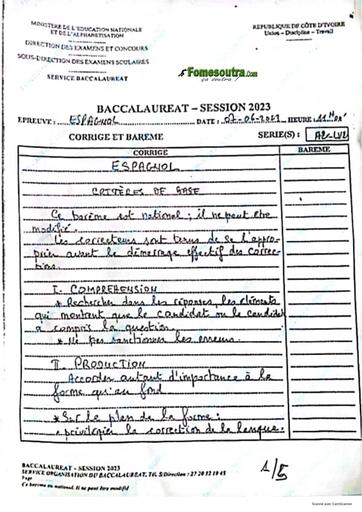 MINISTERE DE L'EDUCATION NATIONALE
ET DE L'ALPHABETISATION
DIRECTION DES EXAMENS ET CONCOURS
SOUS-DIRECTION DES EXAMENS SCOLAIRES
SERVICE BACCALAUREAT
REPUBLIQUE DE CÔTE D'IVOIRE
Union – Discipline – Travail
Fomesoutra.com
ça soutra !
BACCALAUREAT – SESSION 2023
EPREUVE : ESPAGNOL DATE : 07-06-2023 HEURE : 11H00'
CORRIGE ET BAREME SERIE(S) : A2-LV2
CORRIGE BAREME
ESPAGNOL
CRITÈRES DE BASE
Ce barème est national ; il ne peut être
modifié.
Les correcteurs sont tenus de se l'appro-
prier avant le démarrage effectif des correc-
tions.
I. COMPREHENSION
* Rechercher dans les réponses les éléments
qui montrent que le candidat ou la candidate
a compris la question.
* Ne pas sanctionner les erreurs.
II. PRODUCTION
Accorder autant d'importance à la
forme qu'au fond
* Sur le plan de la forme :
privilégier la correction de la langue.
BACCALAUREAT – SESSION 2023
SERVICE ORGANISATION DU BACCALAUREAT, Tél. S/Direction : 27 20 32 19 45
Page
Ce barème est national. Il ne peut être modifié
1/5